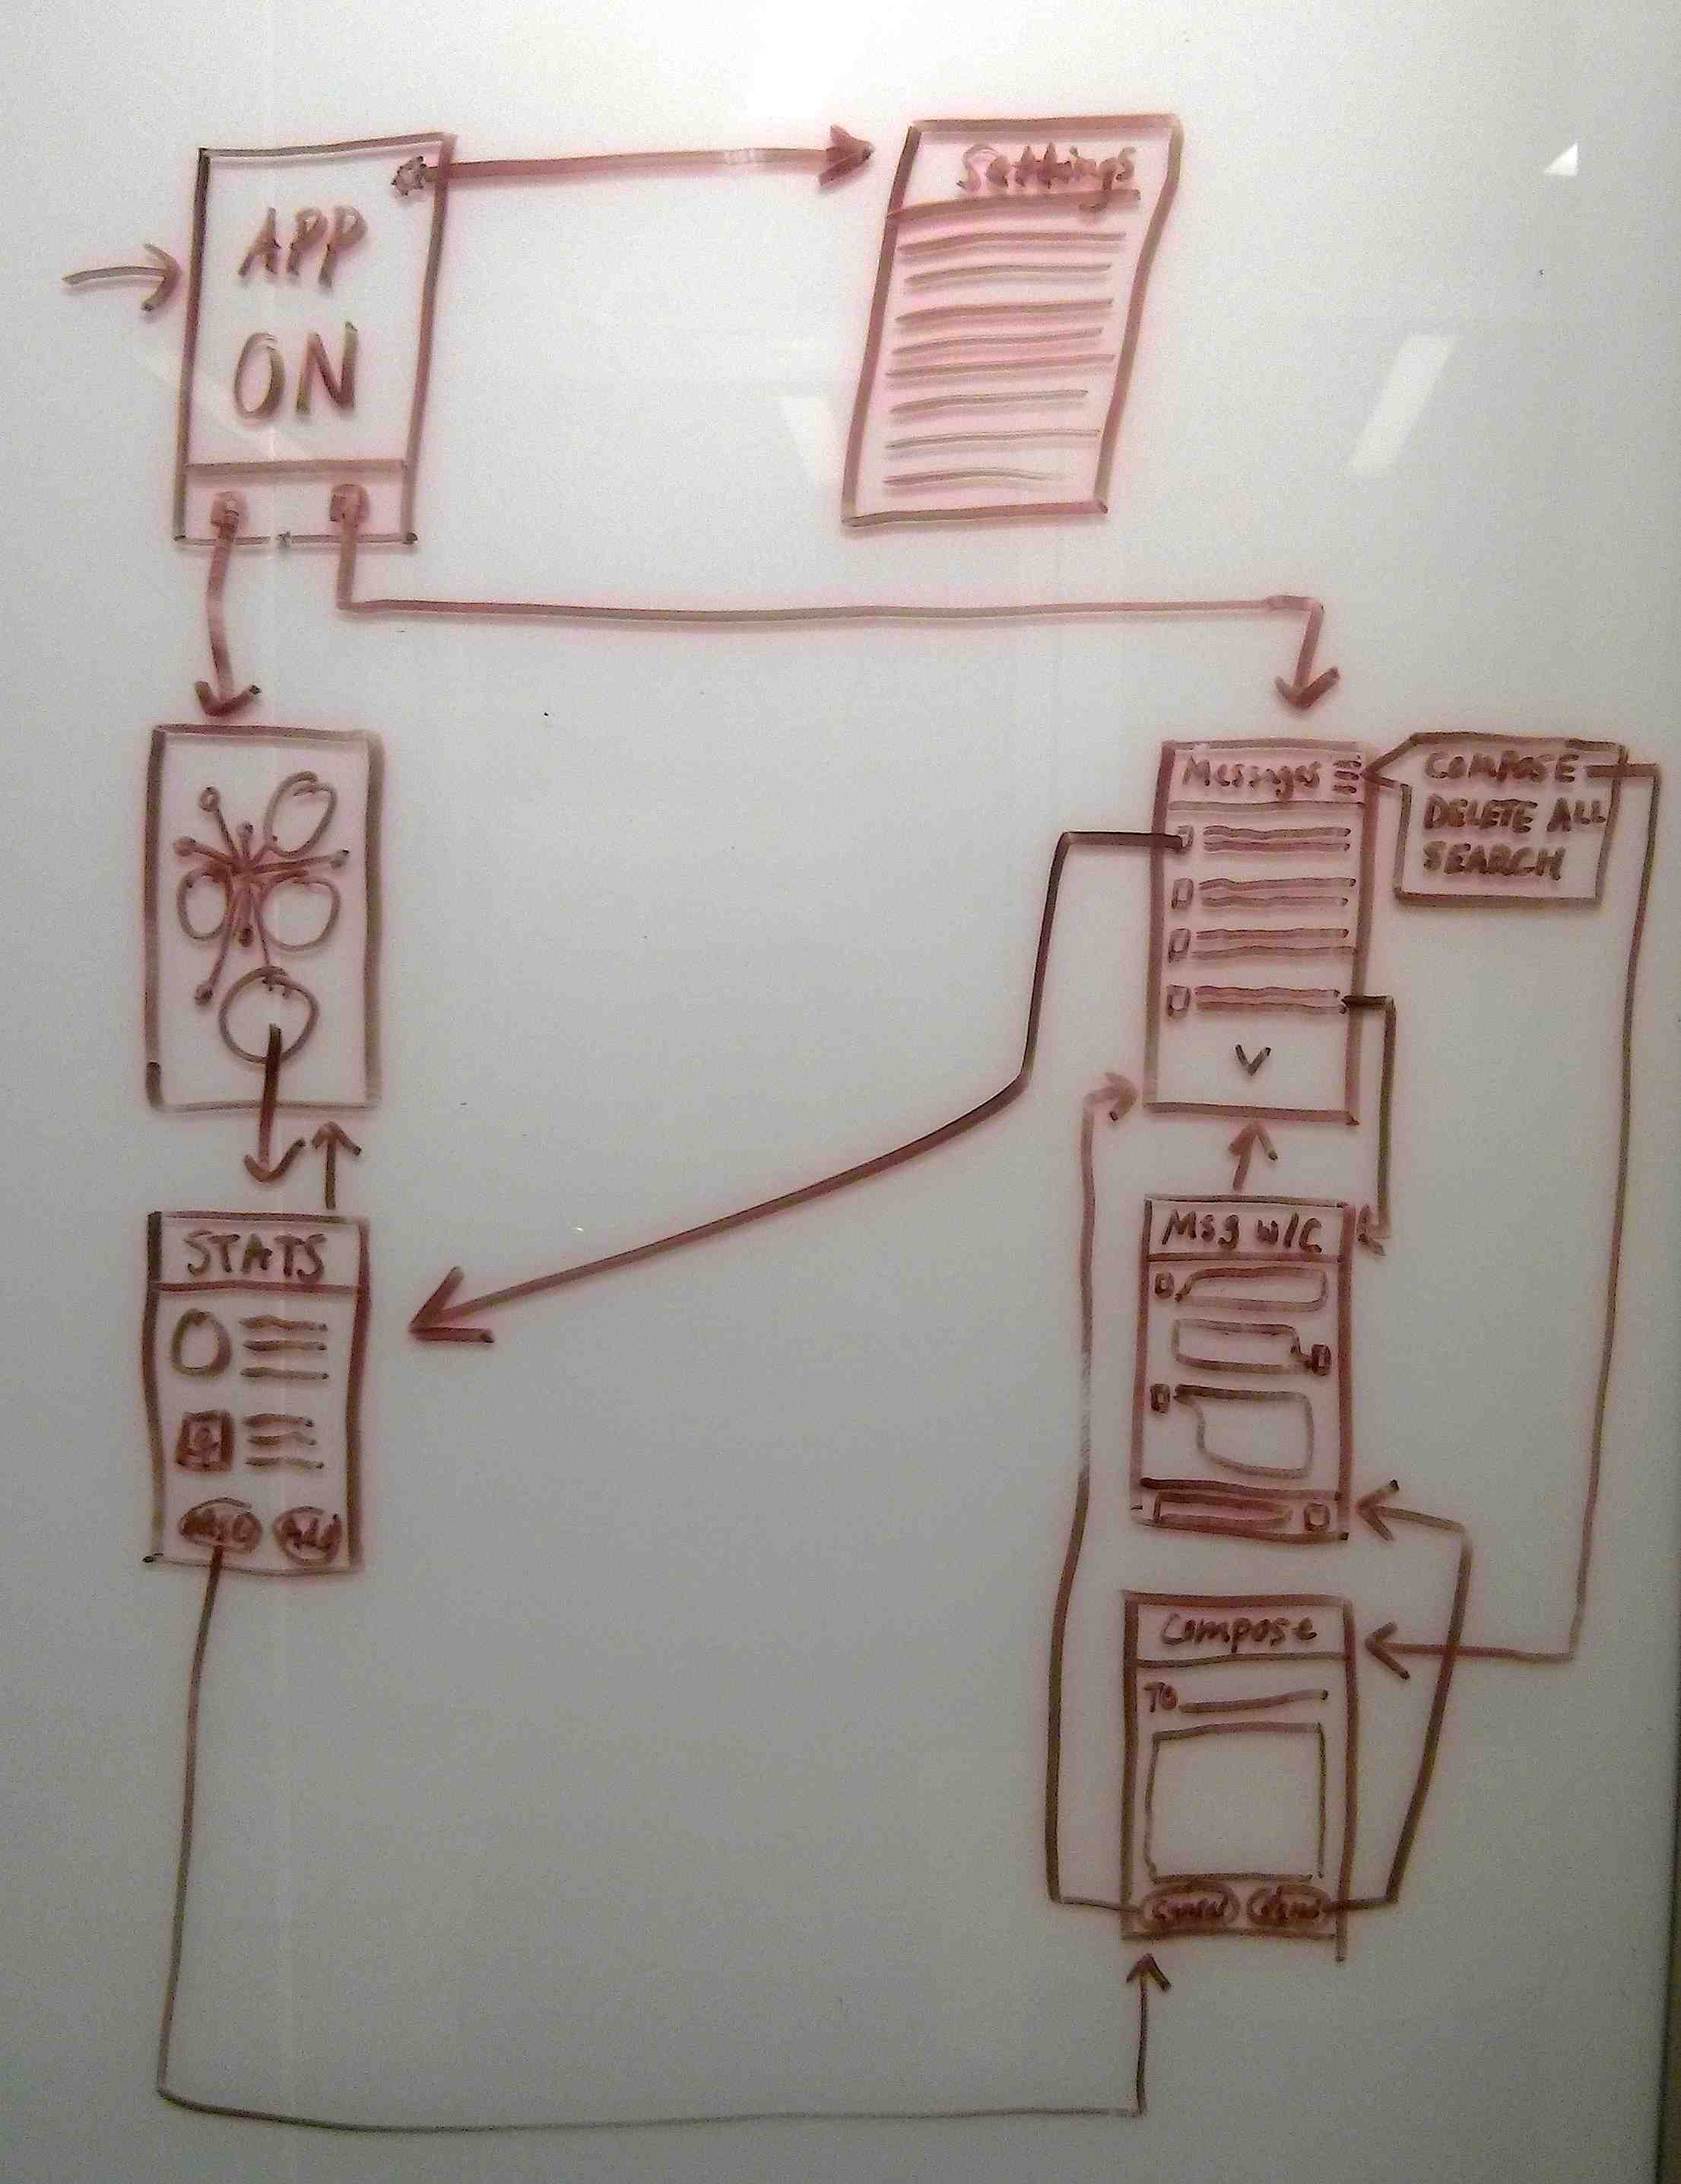 APP
ON
Settings
Messages
COMPOSE
DELETE ALL
SEARCH
STATS
MSG
Add
Msg w/C
Compose
TO
Cancel